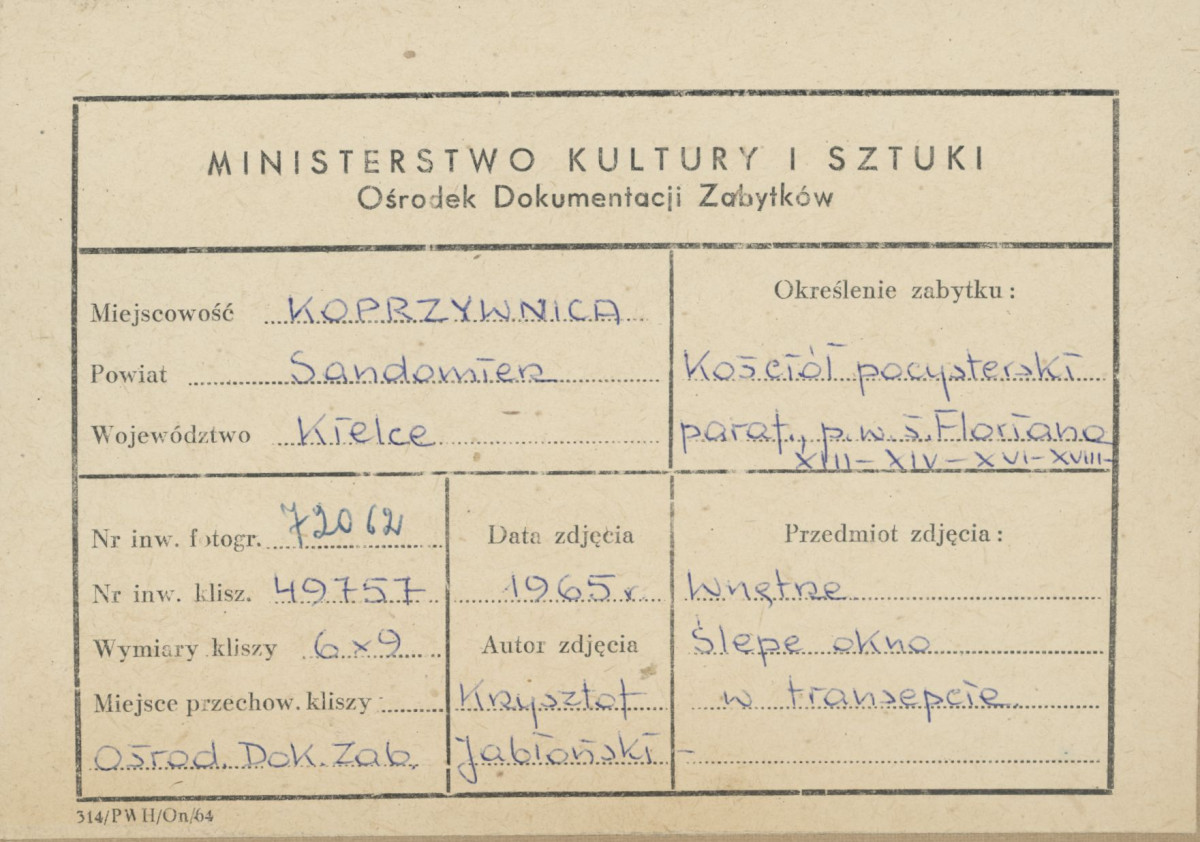 MINISTERSTWO KULTURY I SZTUKI
Ośrodek Dokumentacji Zabytków
Miejscowość KOPRZYWNICA
Powiat Sandomierz
Województwo Kielce
Określenie zabytku:
Kościół pocysterski
paraf., p.w. ś. Floriana
XIII - XIV - XVI - XVIII -
Nr inw. fotogr. 72062
Nr inw. klisz. 49757
Wymiary kliszy 6x9
Miejsce przechow. kliszy
Ośrod. Dok. Zab.
Data zdjęcia
1965 r.
Autor zdjęcia
Krzysztof
Jabłoński -
Przedmiot zdjęcia:
Wnętrze
Ślepe okno
w transepcie.
314/PWH/On/64